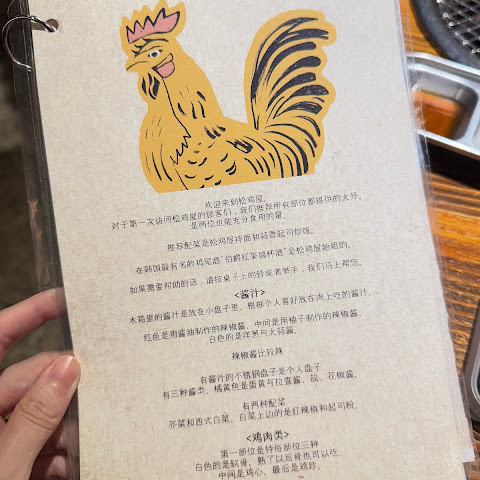 欢迎来到松鸡屋。
对于第一次访问松鸡屋的顾客们，我们推荐所有部位都提供的大号。
是两位也能充分食用的量。
推荐配菜是松鸡屋拌面和蒜香起司炒饭。
在韩国最有名的鸡尾酒"伯爵红茶嗨杯酒"是松鸡屋始祖的。
如果需要帮助的话，请按桌子上的铃或者举手，我们马上帮您。
<酱汁>
木箱里的酱汁是放在小盘子里，根据个人喜好放在肉上吃的酱汁。
红色是用酱油制作的辣椒酱、中间是用柚子制作的辣椒、
白色的是洋葱与大蒜酱。
辣椒酱比较辣
有酱汁的不锈钢盘子是个人盘子
有三种酱类、橘黄色是蛋黄与拉差酱、盐、花椒酱。
有两种配菜
芥菜和西式白菜、白菜上边的是红辣椒和起司粉。
<鸡肉类>
第一部位是特俗部位三种
白色的是软骨、熟了以后骨也可以吃
中间是鸡心、最后是鸡珍。